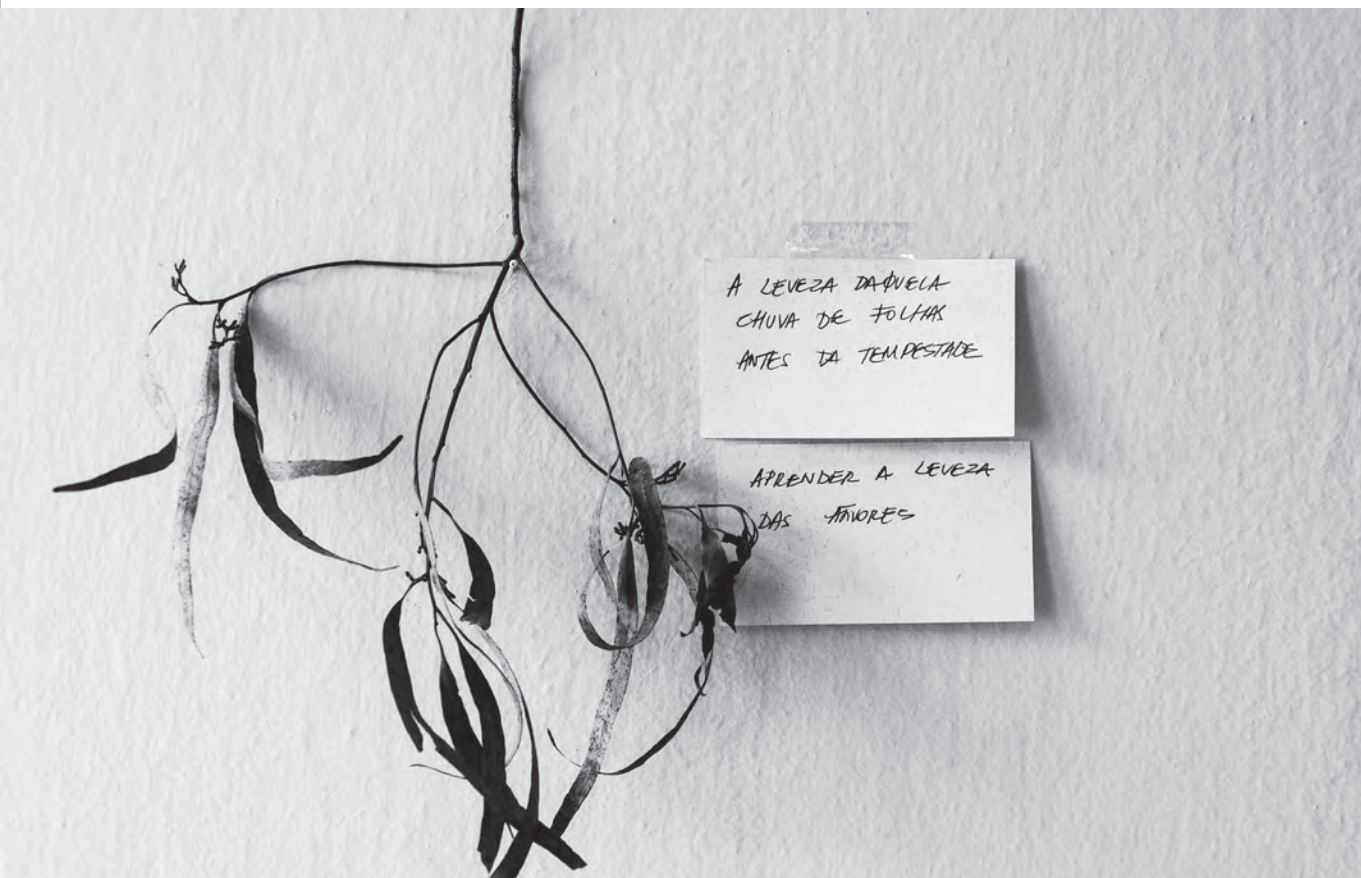 A LEVEZA DAQUELA
CHUVA DE FOLHAS
ANTES DA TEMPESTADE
APRENDER A LEVEZA
DAS ÁRVORES